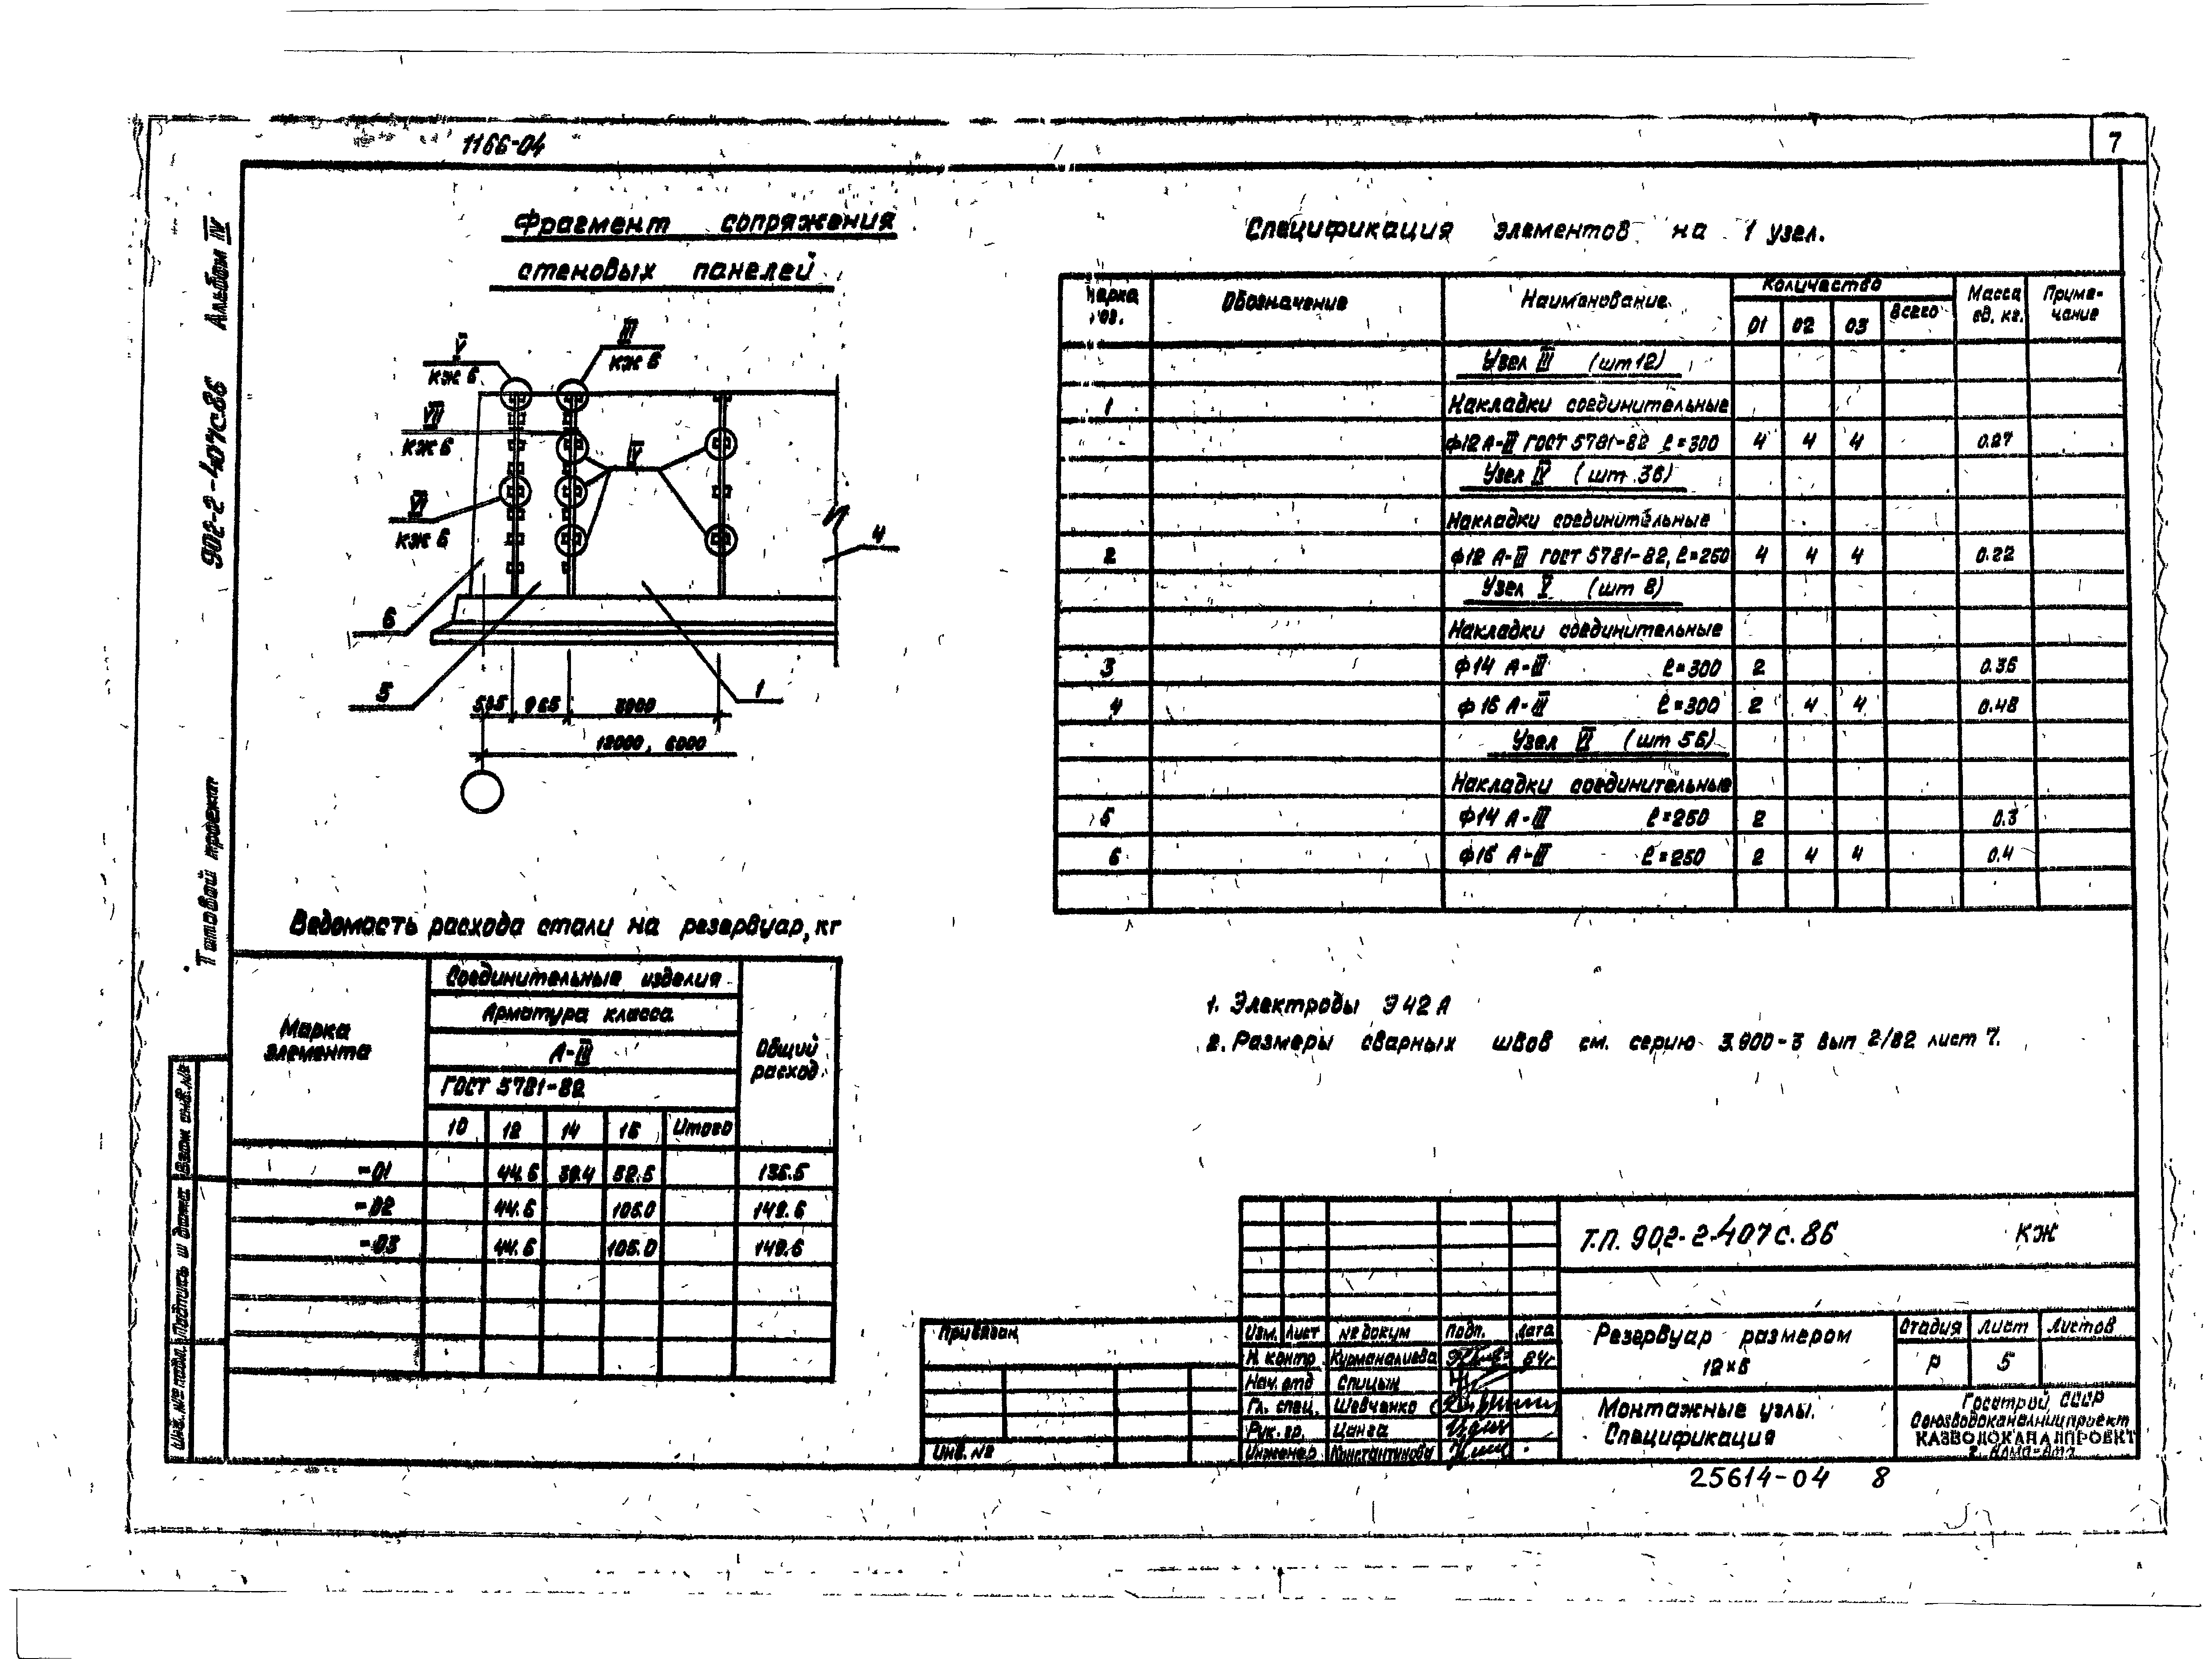 1166-04
7
Альбом IV
902-2-407с.86
Типовой проект
Фрагмент сопряжения
стеновых панелей
V
КЖ 6
III
КЖ 6
VII
КЖ 6
IV
VI
КЖ 6
4
6
5
1
535 965 3000
12000, 6000
Спецификация элементов на 1 узел.
Марка поз. Обозначение Наименование Количество Масса ед, кг. Приме-чание
01 02 03 Всего
Узел III (шт 12)
1 Накладки соединительные
ф12 А-III ГОСТ 5781-82 ℓ=300 4 4 4 0.27
Узел IV (шт 36)
Накладки соединительные
2 ф12 А-III ГОСТ 5781-82, ℓ=250 4 4 4 0.22
Узел V (шт 8)
Накладки соединительные
3 ф14 А-III ℓ=300 2 0.36
4 ф16 А-III ℓ=300 2 4 4 0.48
Узел VI (шт 56)
Накладки соединительные
5 ф14 А-III ℓ=250 2 0.3
6 ф16 А-III ℓ=250 2 4 4 0.4
Ведомость расхода стали на резервуар, кг
Марка элемента Соединительные изделия Общий расход
Арматура класса
А-III
ГОСТ 5781-82
10 12 14 16 Итого
-01 44.6 39.4 52.5 136.5
-02 44.6 105.0 149.6
-03 44.6 105.0 149.6
1. Электроды Э42А
2. Размеры сварных швов см. серию 3.900-3 вып 2/82 лист 7.
Инв. № подл. Подпись и дата Взам инв. №
Т.П. 902-2-407с.86 КЖ
Привязан
Инв. №
Изм. Лист № докум Подп. Дата
Н. контр Курманалиева 84г
Нач. отд Спицын
Гл. спец. Шевченко
Рук. гр. Цанга
Инженер Константинова
Резервуар размером
12×6
Стадия Лист Листов
Р 5
Монтажные узлы.
Спецификация
Госстрой СССР
Союзводоканалниипроект
КАЗВОДОКАНАЛПРОЕКТ
г. Алма-Ата
25614-04 8